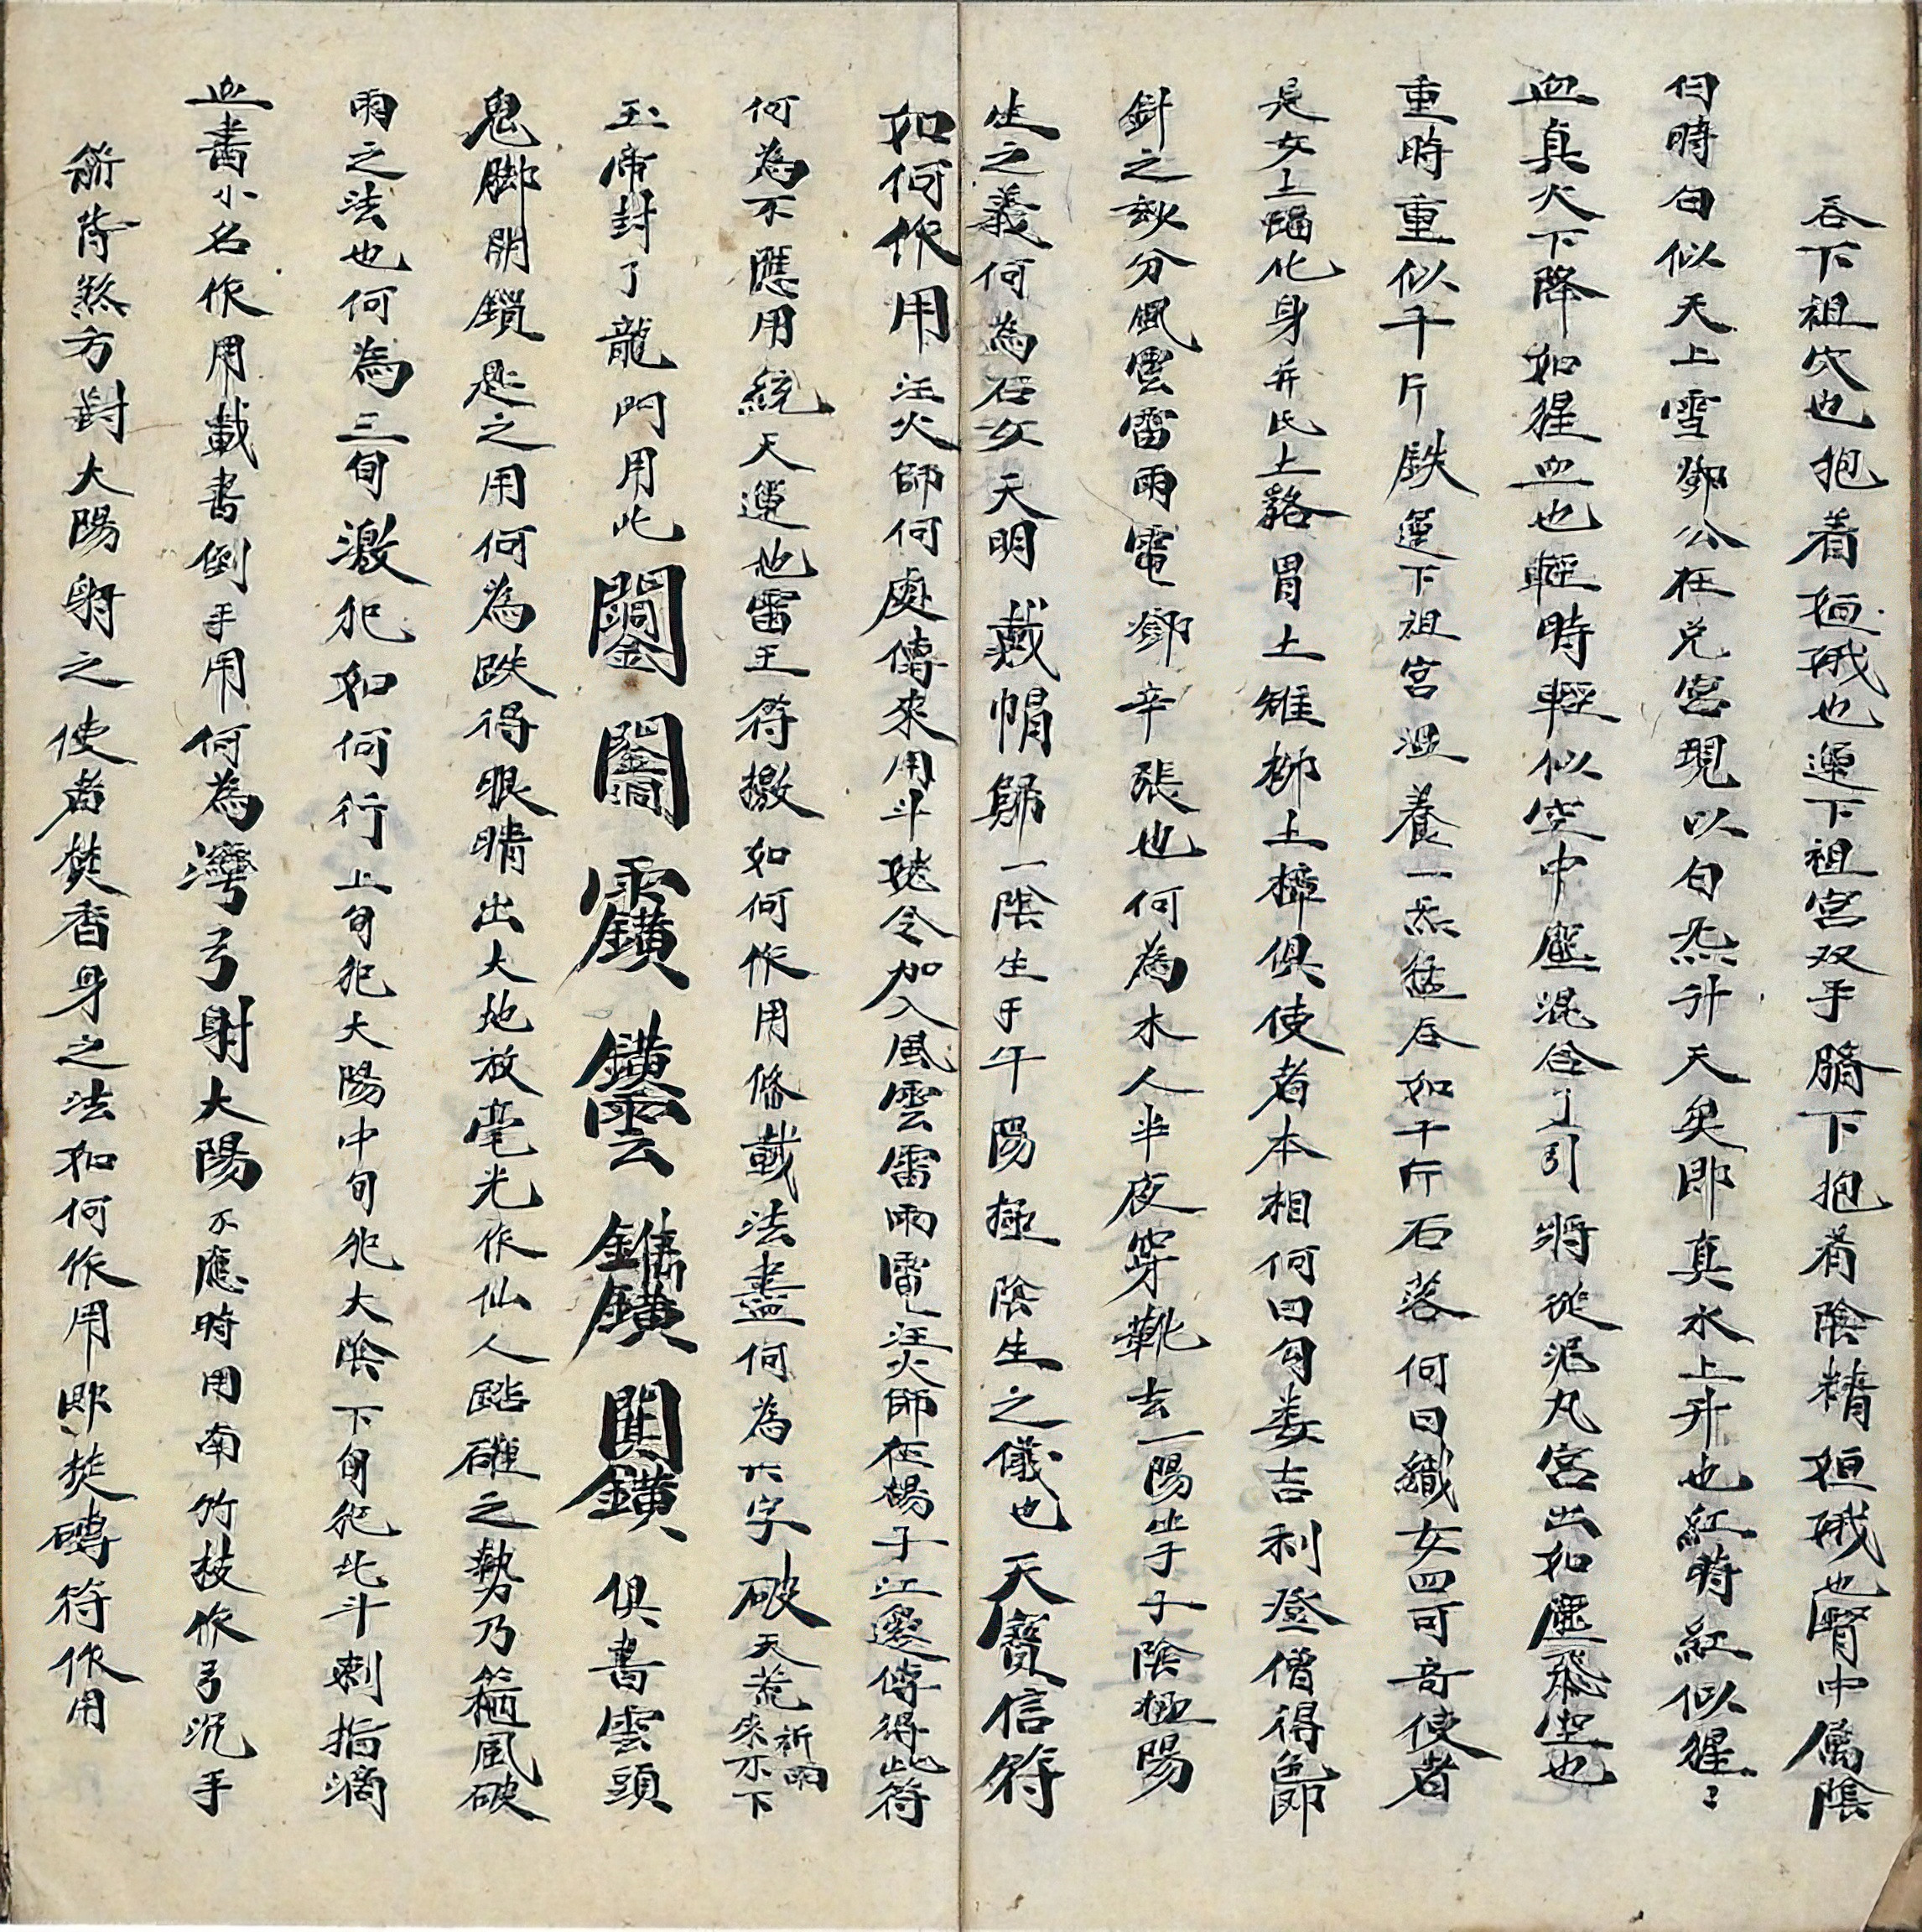 吞下祖穴也抱着姮娥也運下祖宮双手臍下抱着陰精姮娥也腎中属陰
白時白似天上雪鄧公在兌宮現以白炁升天矣即真水上升也紅時紅似猩〻
血真火下降如猩血也輕時輕似空中塵混合了引將從泥丸宮出如塵飛空也
重時重似千斤鉄運下祖宮溫養一炁猛吞如千斤石落何曰織女四可竒使者
是女土蝠化身并氐土貉胃土雉柳土樟俱使者本相何曰勾娄吉利登僧得色
針之訣分風雲雷雨電鄧辛張也何為木人半夜穿靴去一陽生于子陰極陽
生之義何為石女天明戴帽歸一陰生于午陽極陰生之儀也天寶信符
如何作用汪火師何處傳來用斗姥令加入風雲雷雨電汪火師在楊子江邊傳得此符
何為不應用統天運也雷王符檄如何作用俻載法盡何為六字破天荒祈雨來不下
玉帝封了龍門用此俱書雲頭
鬼脚開鎖匙之用何為跌得眼睛出大地放毫光作仙人踏碓之勢乃箱風破
雨之法也何為三旬激犯如何行上旬犯太陽中旬犯太陰下旬犯北斗刺指滴
血書小名作用載書倒手用何為灣弓射大陽不應時用南竹枝作弓沉手
箭背煞方對大陽射之使者焚香身之法如何作用即焚磚符作用